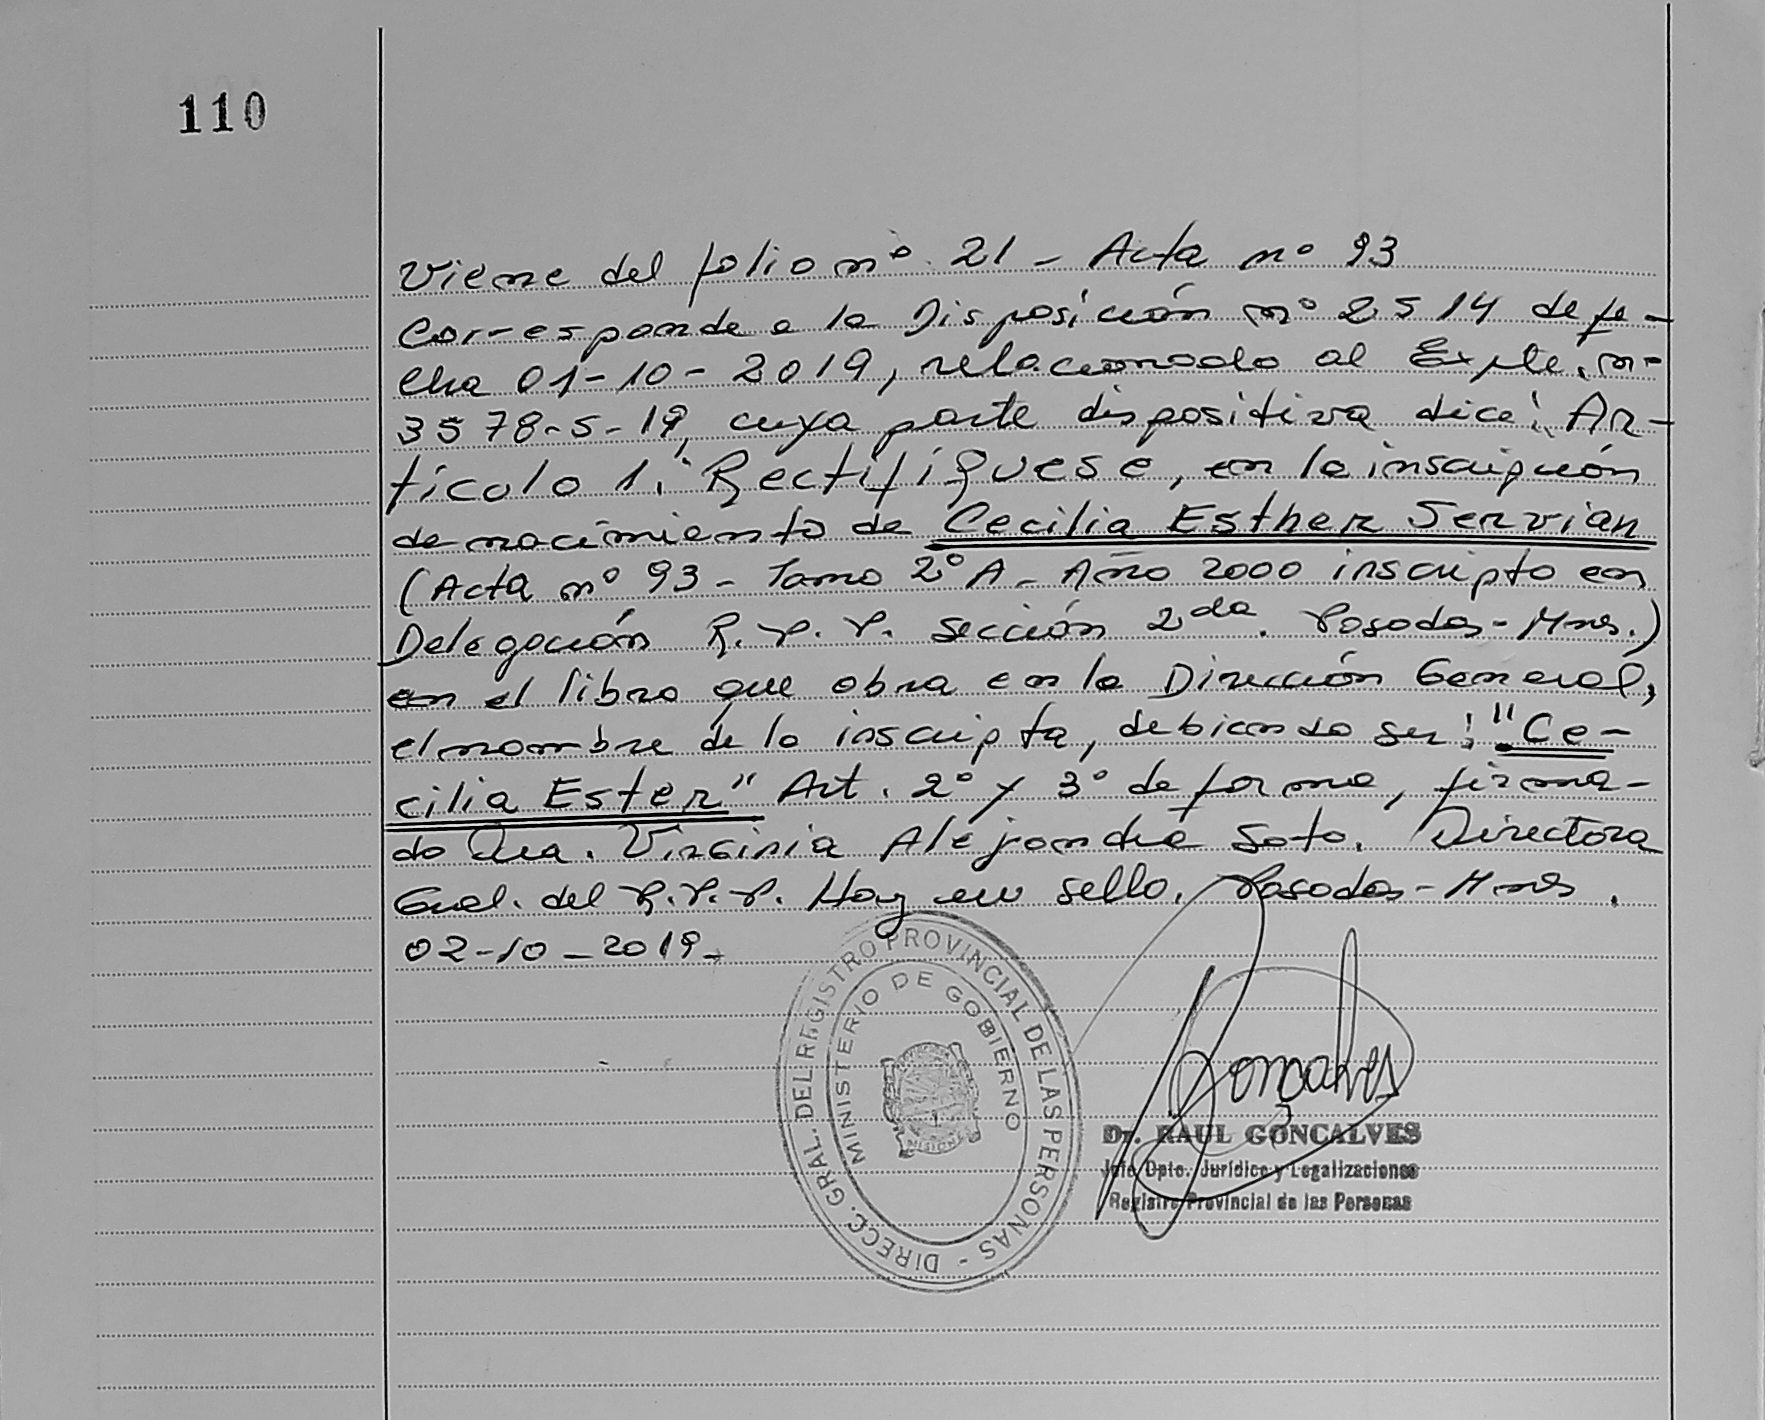 110
Viene del folio nº 21 - Acta nº 93
Corresponde a la Disposición nº 2514 de fe-
cha 01-10-2019, relacionado al Expte. nº
3578-S-19, cuya parte dispositiva dice: Ar-
tículo 1: Rectifíquese, en la inscripción
de nacimiento de Cecilia Esther Servian
(Acta nº 93 - Tomo 2º A - Año 2000 inscripto en
Delegación R.P.P. Sección 2da. Posadas-Mnes.)
en el libro que obra en la Dirección General,
el nombre de la inscripta, debiendo ser: "Ce-
cilia Ester" Art. 2º y 3º de forma, firma-
do Dra. Virginia Alejandra Soto. Directora
Gral. del R.P.P. Hay un sello. Posadas-Mnes.
02-10-2019-
DIRECC. GRAL. DEL REGISTRO PROVINCIAL DE LAS PERSONAS -
MINISTERIO DE GOBIERNO
Goncalves
Dr. RAUL GONCALVES
Jefe Dpto. Jurídico y Legalizaciones
Registro Provincial de las Personas